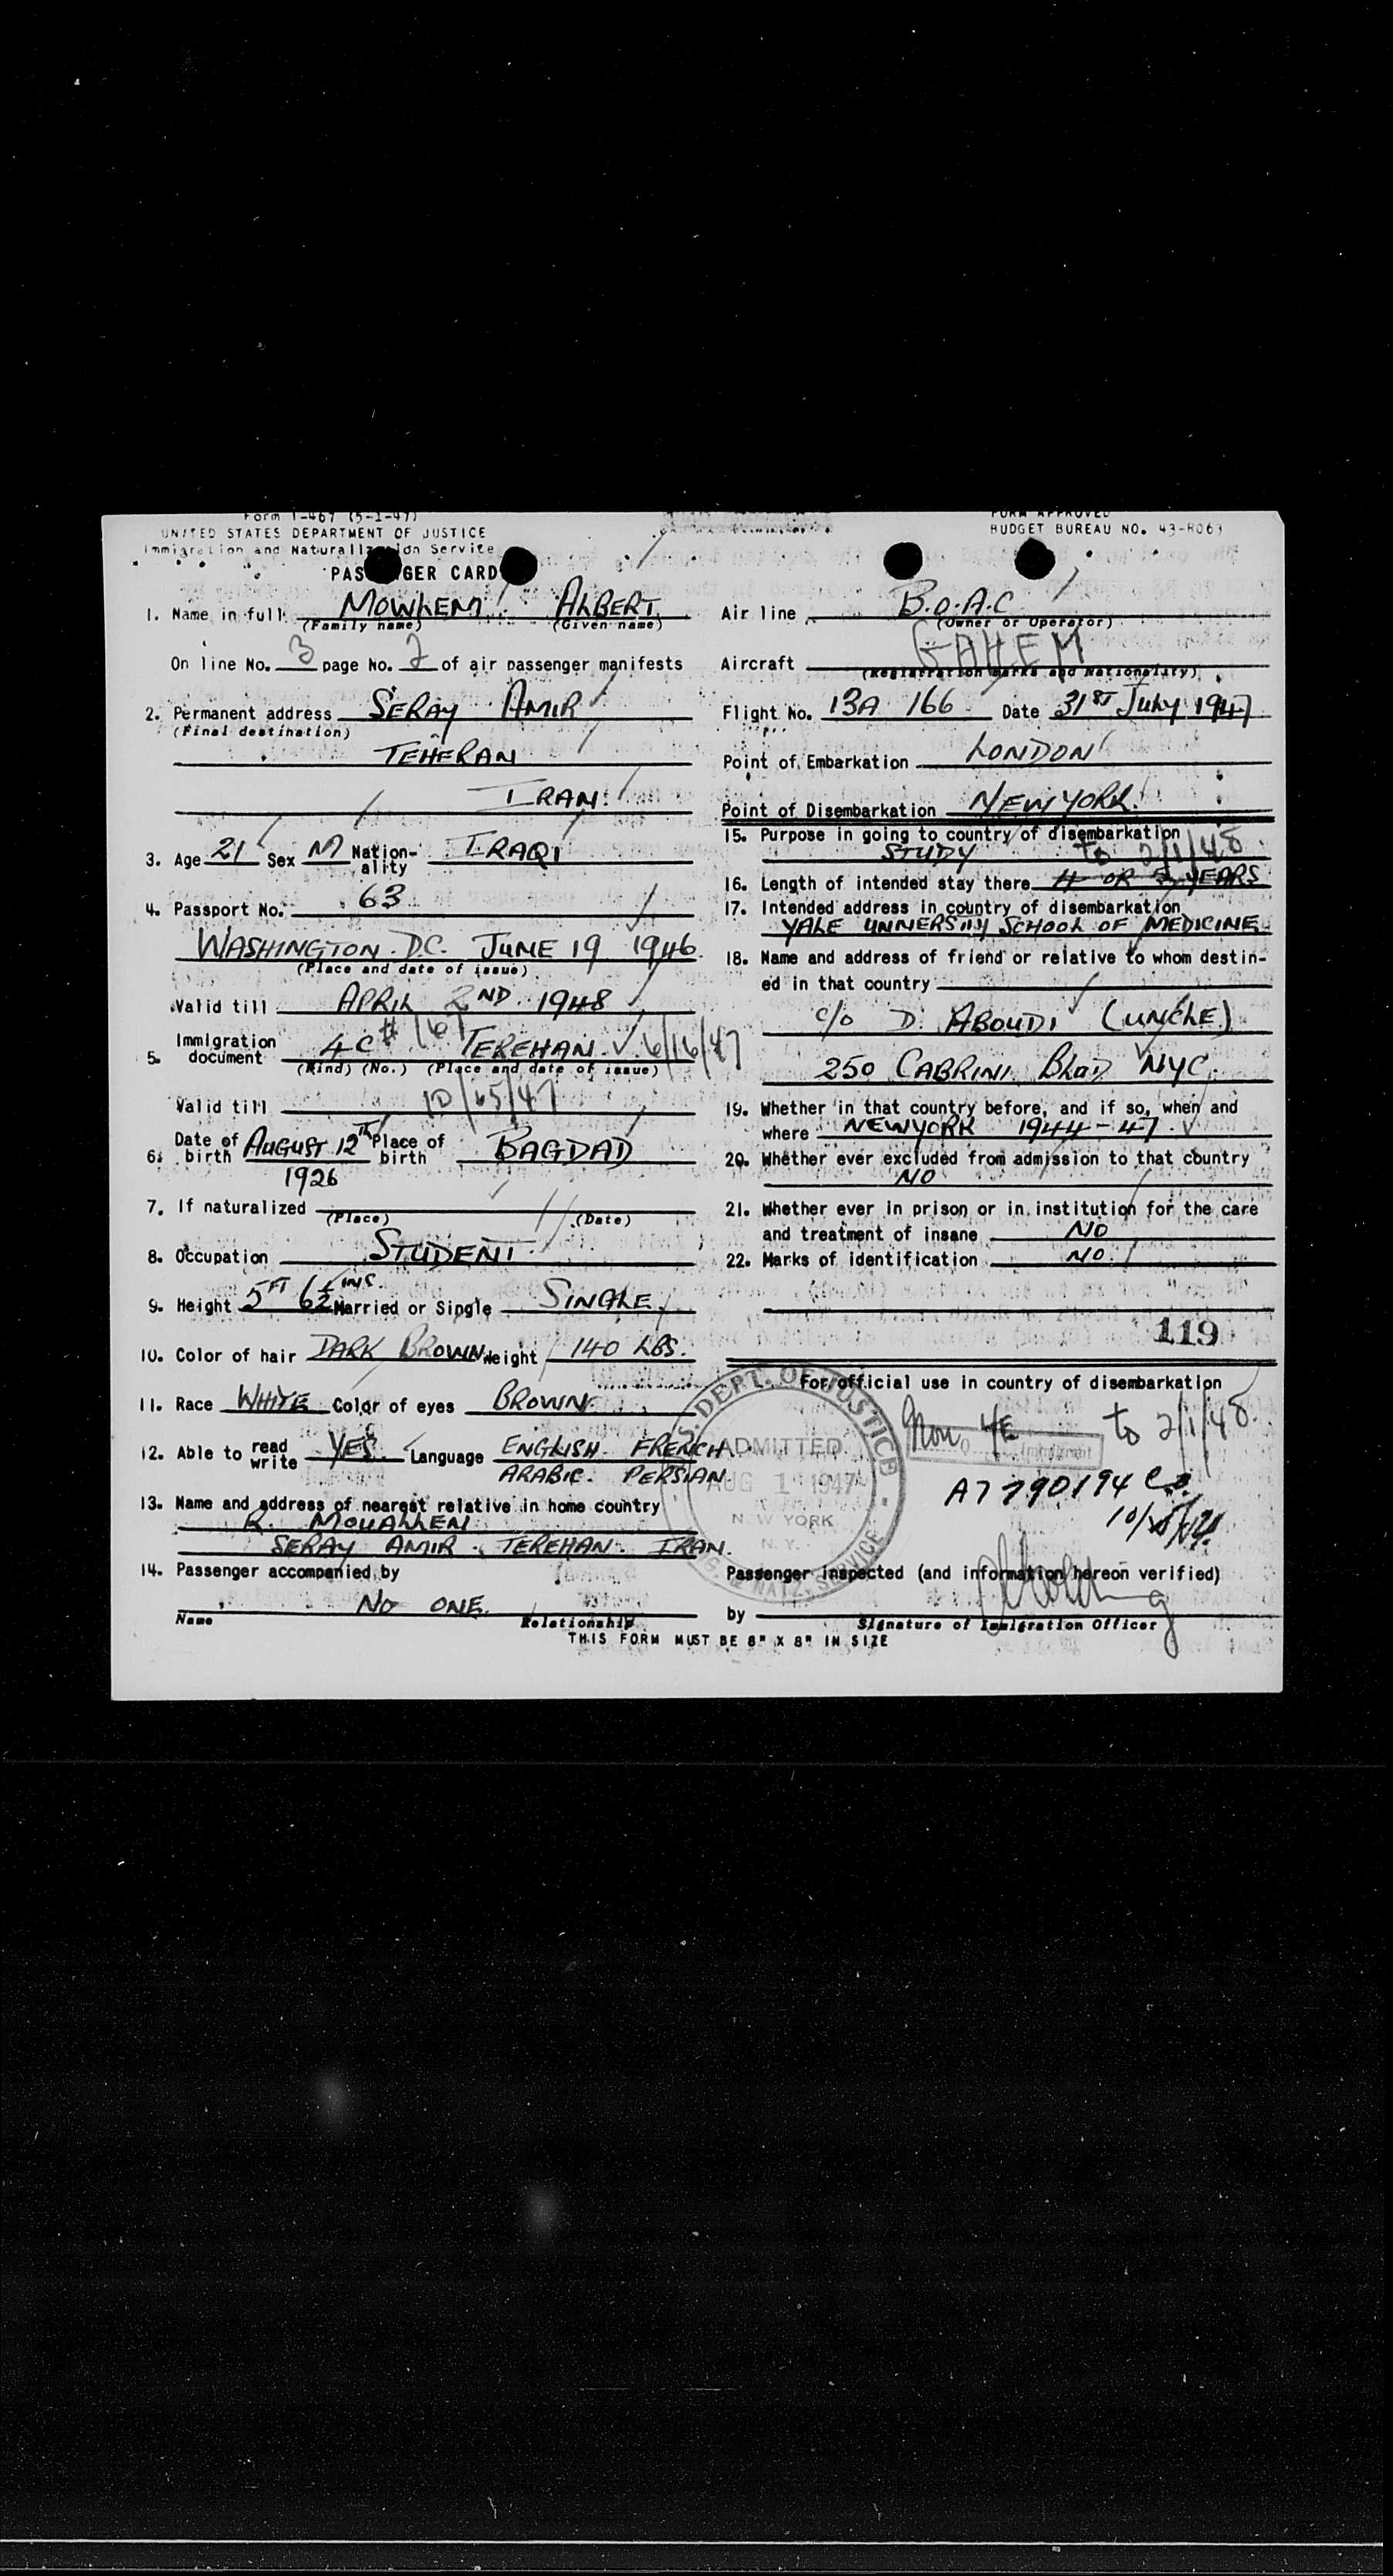 Form I-467 (5-1-47)
UNITED STATES DEPARTMENT OF JUSTICE
Immigration and Naturalization Service
PASSENGER CARD
FORM APPROVED
BUDGET BUREAU NO. 43-R063
1. Name in full MOWLEM ALBERT
(Family name) (Given name)
On line No. 3 page No. 2 of air passenger manifests
2. Permanent address SERAY AMIR
(Final destination)
TEHERAN
IRAN
3. Age 21 Sex M Nationality IRAQI
4. Passport No. 63
WASHINGTON D.C. JUNE 19 1946
(Place and date of issue)
Valid till APRIL 2ND 1948
5. Immigration document 4C # 167 TEREHAN 6/16/47
(Kind) (No.) (Place and date of issue)
Valid till 10/15/47
6. Date of birth AUGUST 12th 1926 Place of birth BAGDAD
7. If naturalized
(Place) (Date)
8. Occupation STUDENT
9. Height 5FT 6½ INS. Married or Single SINGLE
10. Color of hair DARK BROWN Weight 140 LBS.
11. Race WHITE Color of eyes BROWN
12. Able to read write YES Language ENGLISH FRENCH
ARABIC. PERSIAN
13. Name and address of nearest relative in home country
R. MOUALLEN
SERAY AMIR. TEREHAN. IRAN.
14. Passenger accompanied by
NO ONE.
Name Relationship
Air line B.O.A.C
(Owner or Operator)
Aircraft GAHEM
(Registration marks and Nationality)
Flight No. 13A 166 Date 31ST July 1947
Point of Embarkation LONDON
Point of Disembarkation NEW YORK
15. Purpose in going to country of disembarkation
STUDY to 2/1/48
16. Length of intended stay there 4 OR 5 YEARS
17. Intended address in country of disembarkation
YALE UNIVERSITY SCHOOL OF MEDICINE
18. Name and address of friend or relative to whom destin-
ed in that country
c/o D. ABOUDI (UNCLE)
250 CABRINI BLVD NYC.
19. Whether in that country before, and if so, when and
where NEWYORK 1944-47
20. Whether ever excluded from admission to that country
NO
21. Whether ever in prison or in institution for the care
and treatment of insane NO
22. Marks of identification NO
119
For official use in country of disembarkation
DEPT. OF JUSTICE
ADMITTED
AUG 1 1947
NEW YORK
N.Y.
& NATZ. SERVICE
Non 4E to 2/1/48
Immigrant
A7790194
Passenger inspected (and information hereon verified)
by
Signature of Immigration Officer
THIS FORM MUST BE 8" X 8" IN SIZE